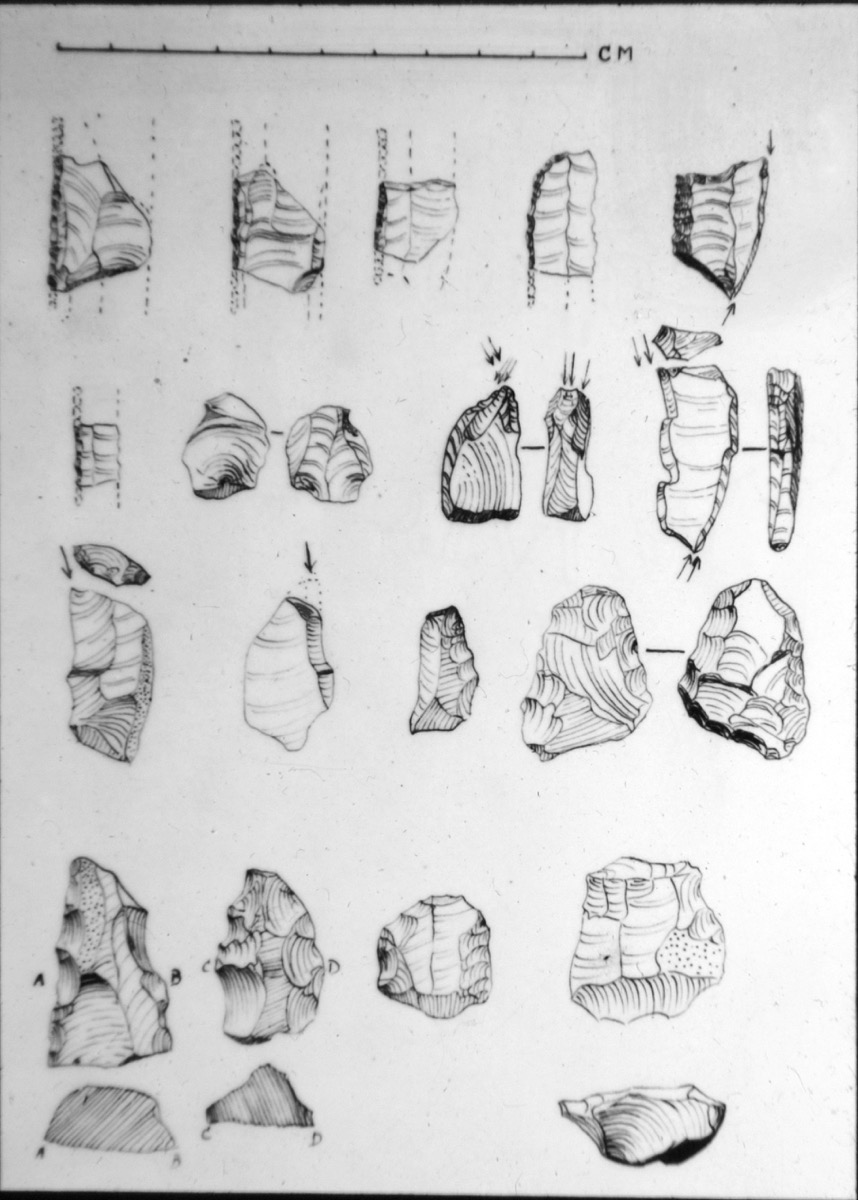 CM
A B
C D
A B
C D